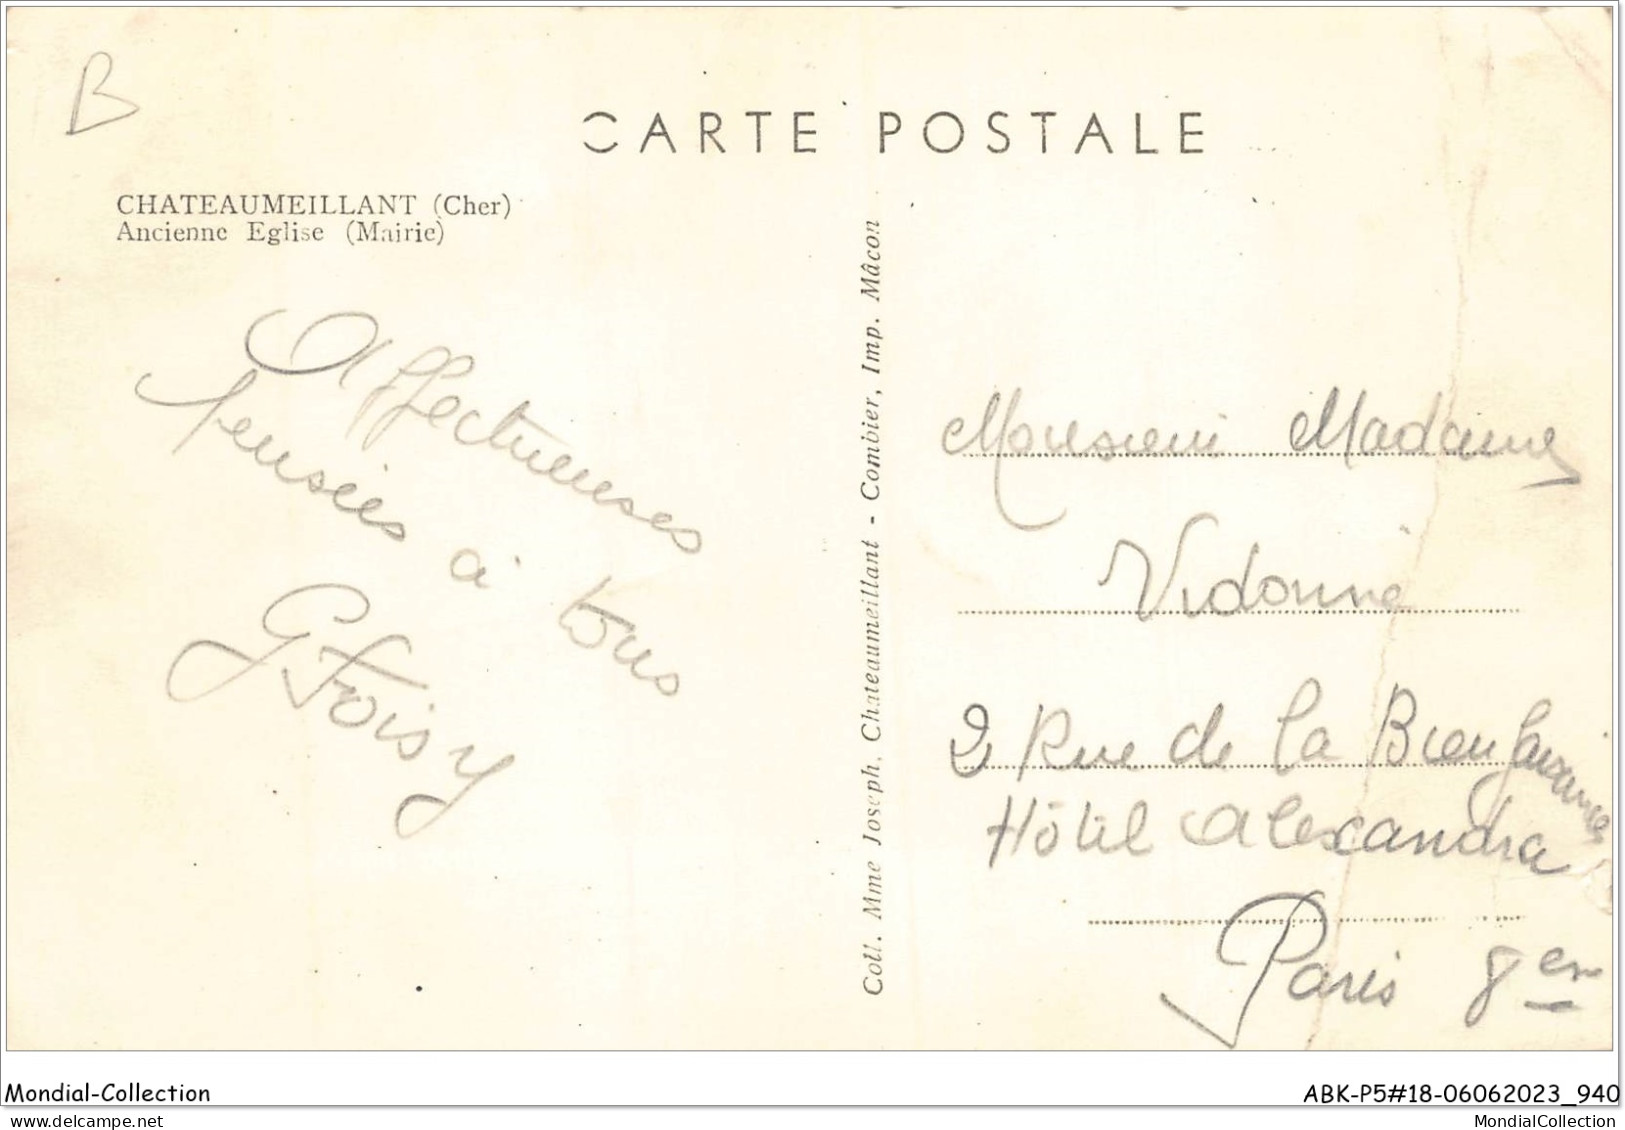 B
CARTE POSTALE
CHATEAUMEILLANT (Cher)
Ancienne Eglise (Mairie)
Affectueuses
pensées à tous
G. Foisy
Coll. Mme Joseph, Chateaumeillant - Combier, Imp. Mâcon
Monsieur Madame
Vidonne
2 Rue de la Bienfaisance
Hôtel Alexandra
Paris 8em
Mondial-Collection
ABK-P5#18-06062023_940
MondialCollection